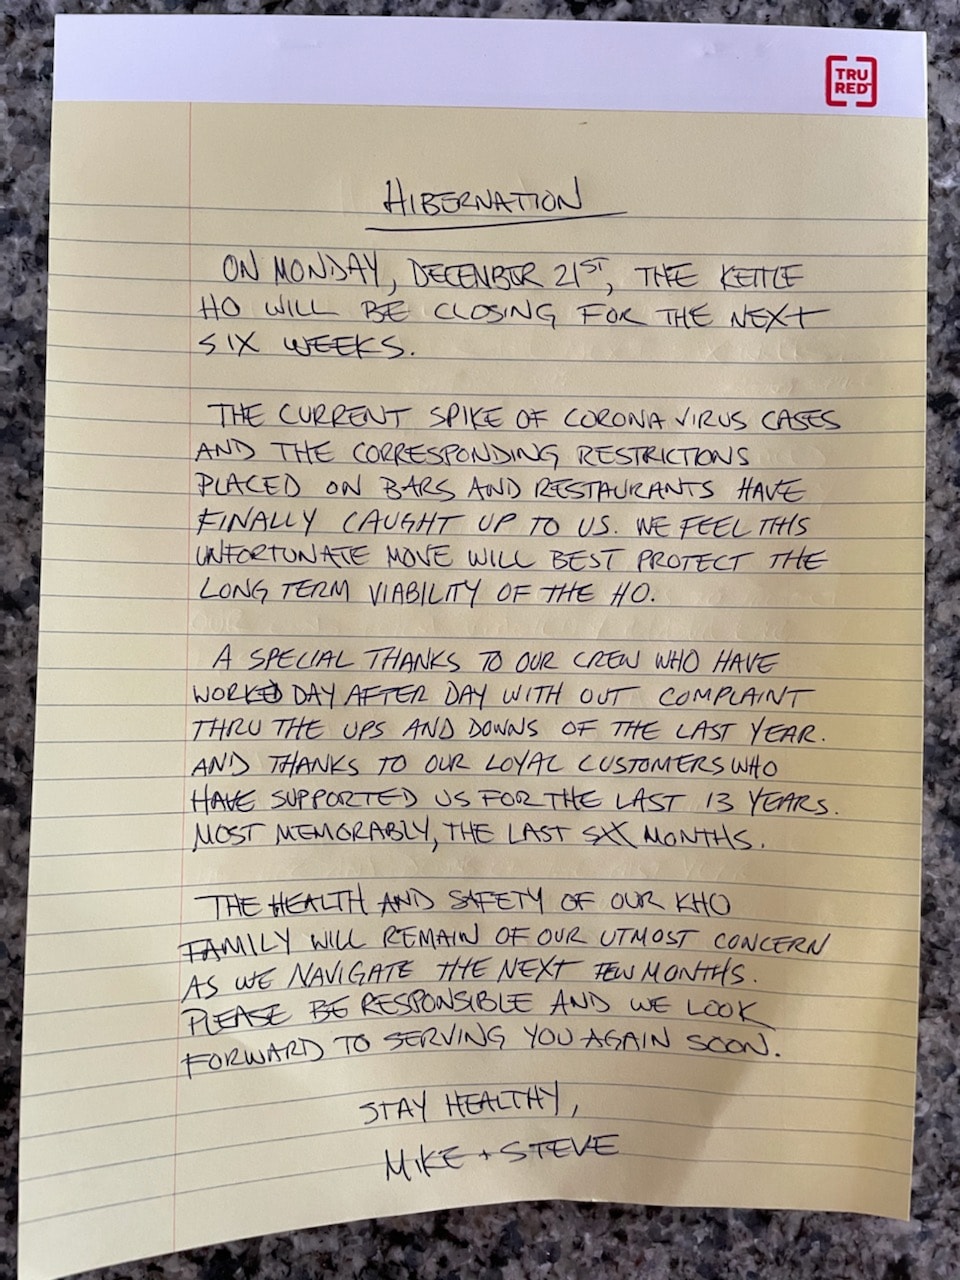 TRU
RED
HIBERNATION
ON MONDAY, DECEMBER 21ST, THE KETTLE
HO WILL BE CLOSING FOR THE NEXT
SIX WEEKS.
THE CURRENT SPIKE OF CORONA VIRUS CASES
AND THE CORRESPONDING RESTRICTIONS
PLACED ON BARS AND RESTAURANTS HAVE
FINALLY CAUGHT UP TO US. WE FEEL THIS
UNFORTUNATE MOVE WILL BEST PROTECT THE
LONG TERM VIABILITY OF THE HO.
A SPECIAL THANKS TO OUR CREW WHO HAVE
WORKED DAY AFTER DAY WITH OUT COMPLAINT
THRU THE UPS AND DOWNS OF THE LAST YEAR.
AND THANKS TO OUR LOYAL CUSTOMERS WHO
HAVE SUPPORTED US FOR THE LAST 13 YEARS.
MOST MEMORABLY, THE LAST SIX MONTHS.
THE HEALTH AND SAFETY OF OUR KHO
FAMILY WILL REMAIN OF OUR UTMOST CONCERN
AS WE NAVIGATE THE NEXT FEW MONTHS.
PLEASE BE RESPONSIBLE AND WE LOOK
FORWARD TO SERVING YOU AGAIN SOON.
STAY HEALTHY,
MIKE + STEVE